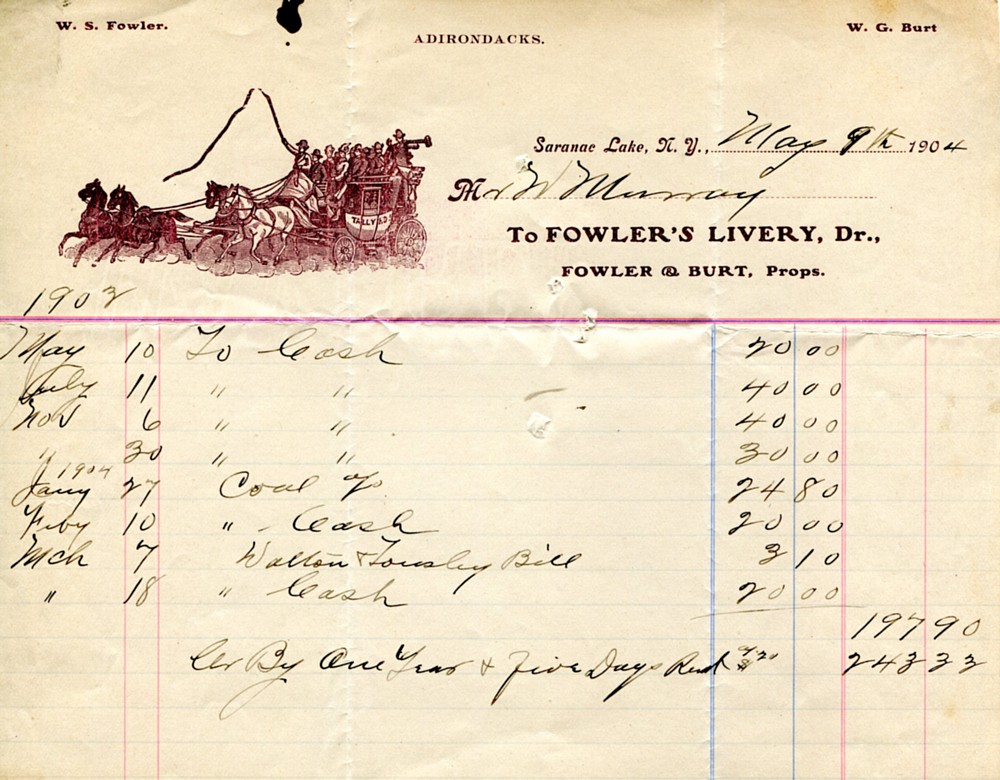 W. S. Fowler.
W. G. Burt
ADIRONDACKS.
Saranac Lake, N. Y., May 9th 1904
Mr W Murray
TALLY HO
To FOWLER'S LIVERY, Dr.,
FOWLER & BURT, Props.
1903
May 10 To Cash 20 00
July 11 " " 40 00
Nov 6 " " 40 00
" 30 " " 30 00
1904
Jany 27 Coal 24 80
Feby 10 " Cash 20 00
Mch 7 Walton & Tousley Bill 3 10
" 18 " Cash 20 00
197 90
Cr By One Year & Five Days Rent 243 33